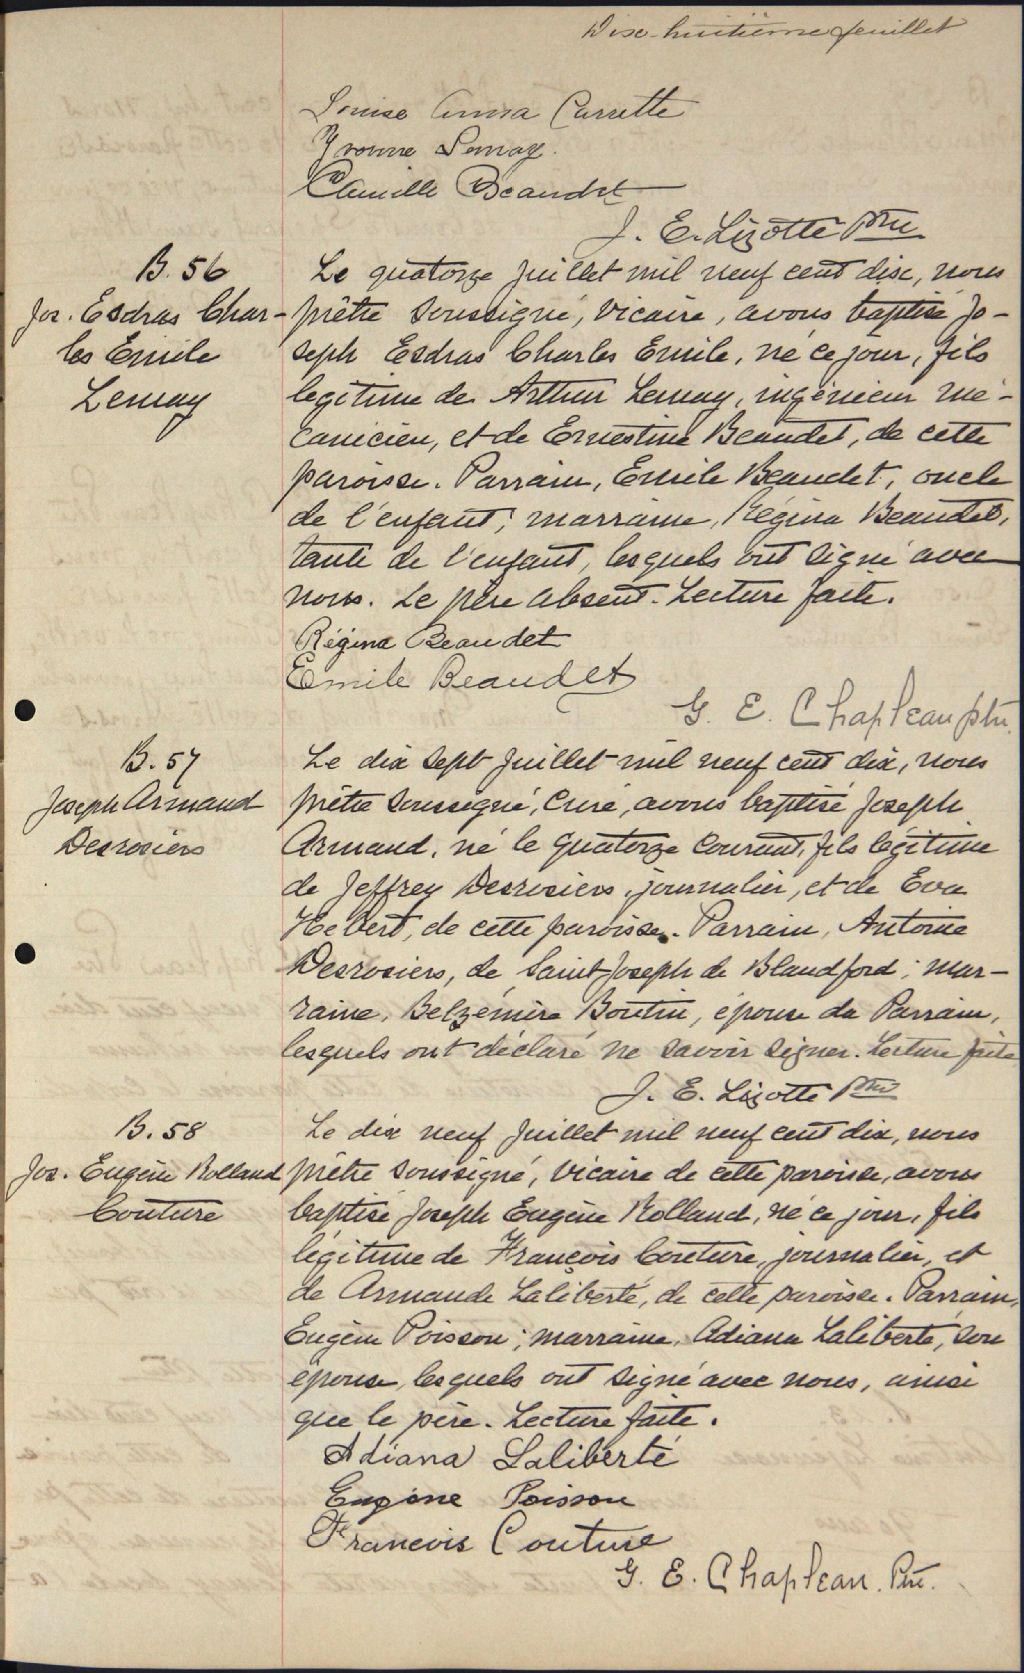 Dix-huitième feuillet
Louise Anna Carrette
Yvonne Lemay.
Camille Beaudet
J. E. Lizotte Ptre
B. 56
Jos. Esdras Char-
les Emile
Lemay
Le quatorze juillet mil neuf cent dix, nous
prêtre soussigné, vicaire, avons baptisé Jo-
seph Esdras Charles Emile, né ce jour, fils
légitime de Arthur Lemay, ingénieur mé-
canicien, et de Ernestine Beaudet, de cette
paroisse. Parrain, Emile Beaudet, oncle
de l'enfant; marraine, Régina Beaudet,
tante de l'enfant, lesquels ont signé avec
nous. Le père absent. Lecture faite.
Régina Beaudet
Emile Beaudet
G. E. Chapleau ptre.
B. 57
Joseph Armand
Desrosiers
Le dix sept juillet mil neuf cent dix, nous
prêtre soussigné, curé, avons baptisé Joseph
Armand, né le quatorze courant, fils légitime
de Jeffrey Desrosiers, journalier, et de Eva
Hebert, de cette paroisse. Parrain, Antoine
Desrosiers, de Saint-Joseph de Blandford; mar-
raine, Belzémire Boutin, épouse du Parrain,
lesquels ont déclaré ne savoir signer. Lecture faite
J. E. Lizotte Ptre
B. 58
Jos. Eugène Rolland
Couture
Le dix neuf juillet mil neuf cent dix, nous
prêtre soussigné, vicaire de cette paroisse, avons
baptisé Joseph Eugène Rolland, né ce jour, fils
légitime de François Couture, journalier, et
de Armande Laliberté, de cette paroisse. Parrain,
Eugène Poisson; marraine, Adiana Laliberté, son
épouse, lesquels ont signé avec nous, ainsi
que le père. Lecture faite.
Adiana Laliberté
Eugène Poisson
Francois Couture
G. E. Chapleau. Ptre.